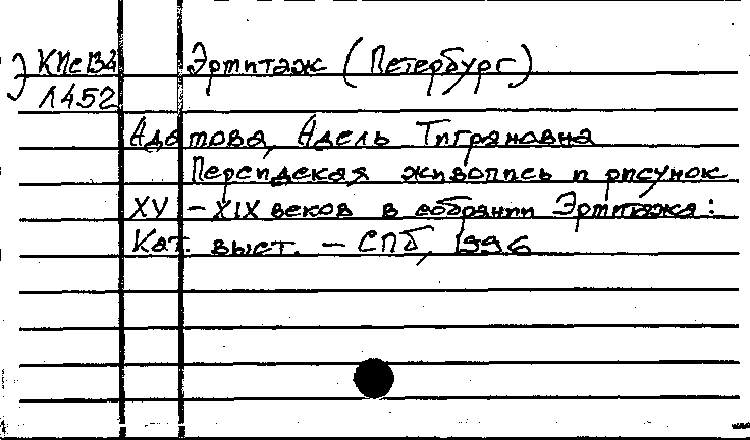 Эрмитаж (Петербург)
Л452
Адамова, Адель Тиграновна
Персидская живопись и рисунок
XV – XIX веков в собрании Эрмитажа:
Кат. выст. – СПб, 1996